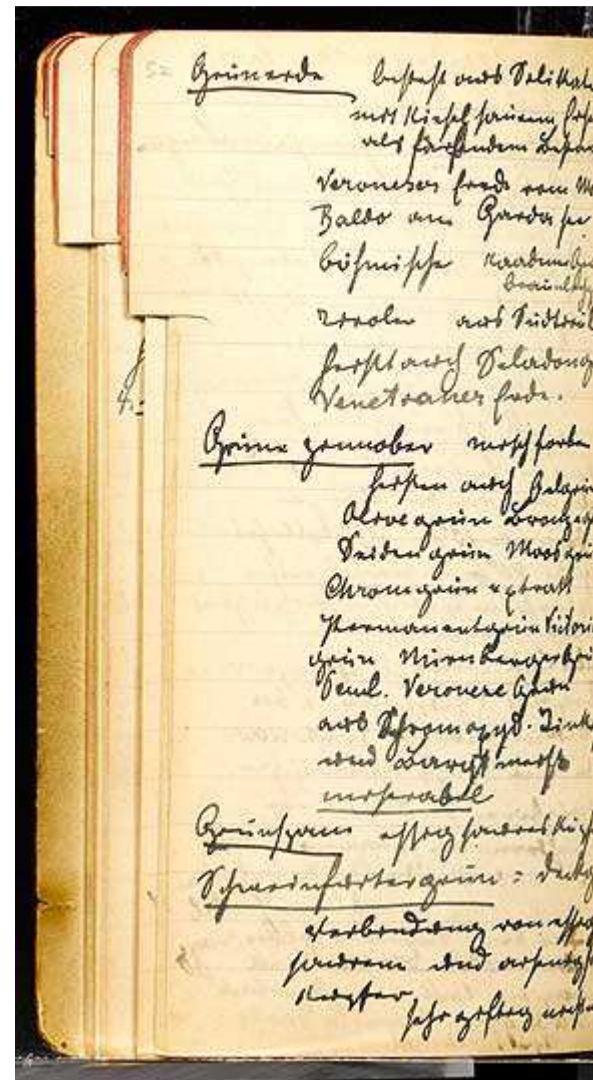 Grünerde besteht aus Silikat
mit Kieselsaurem
als färbendem
Veroneser Erde vom
Baldo am Garda see
böhmische
Tiroler aus Südtirol
heißt auch Seladong
Venetianer Erde.
Grüner zinnober mischfarben
heißen auch
Olivegrün Bronzeg
Seidengrün Moosgrü
Chromgrün extrakt
Permanentgrün Victori
grün Nürnberger Grü
Deul. Veroneser Grün
aus Chromoxyd. Zink
und Baryt meist
miserabel
Grünspan essigsaures Kupf
Schweinfurtergrün =
Verbindung von essig
saurem und arsenigs
Kupfer
sehr giftig